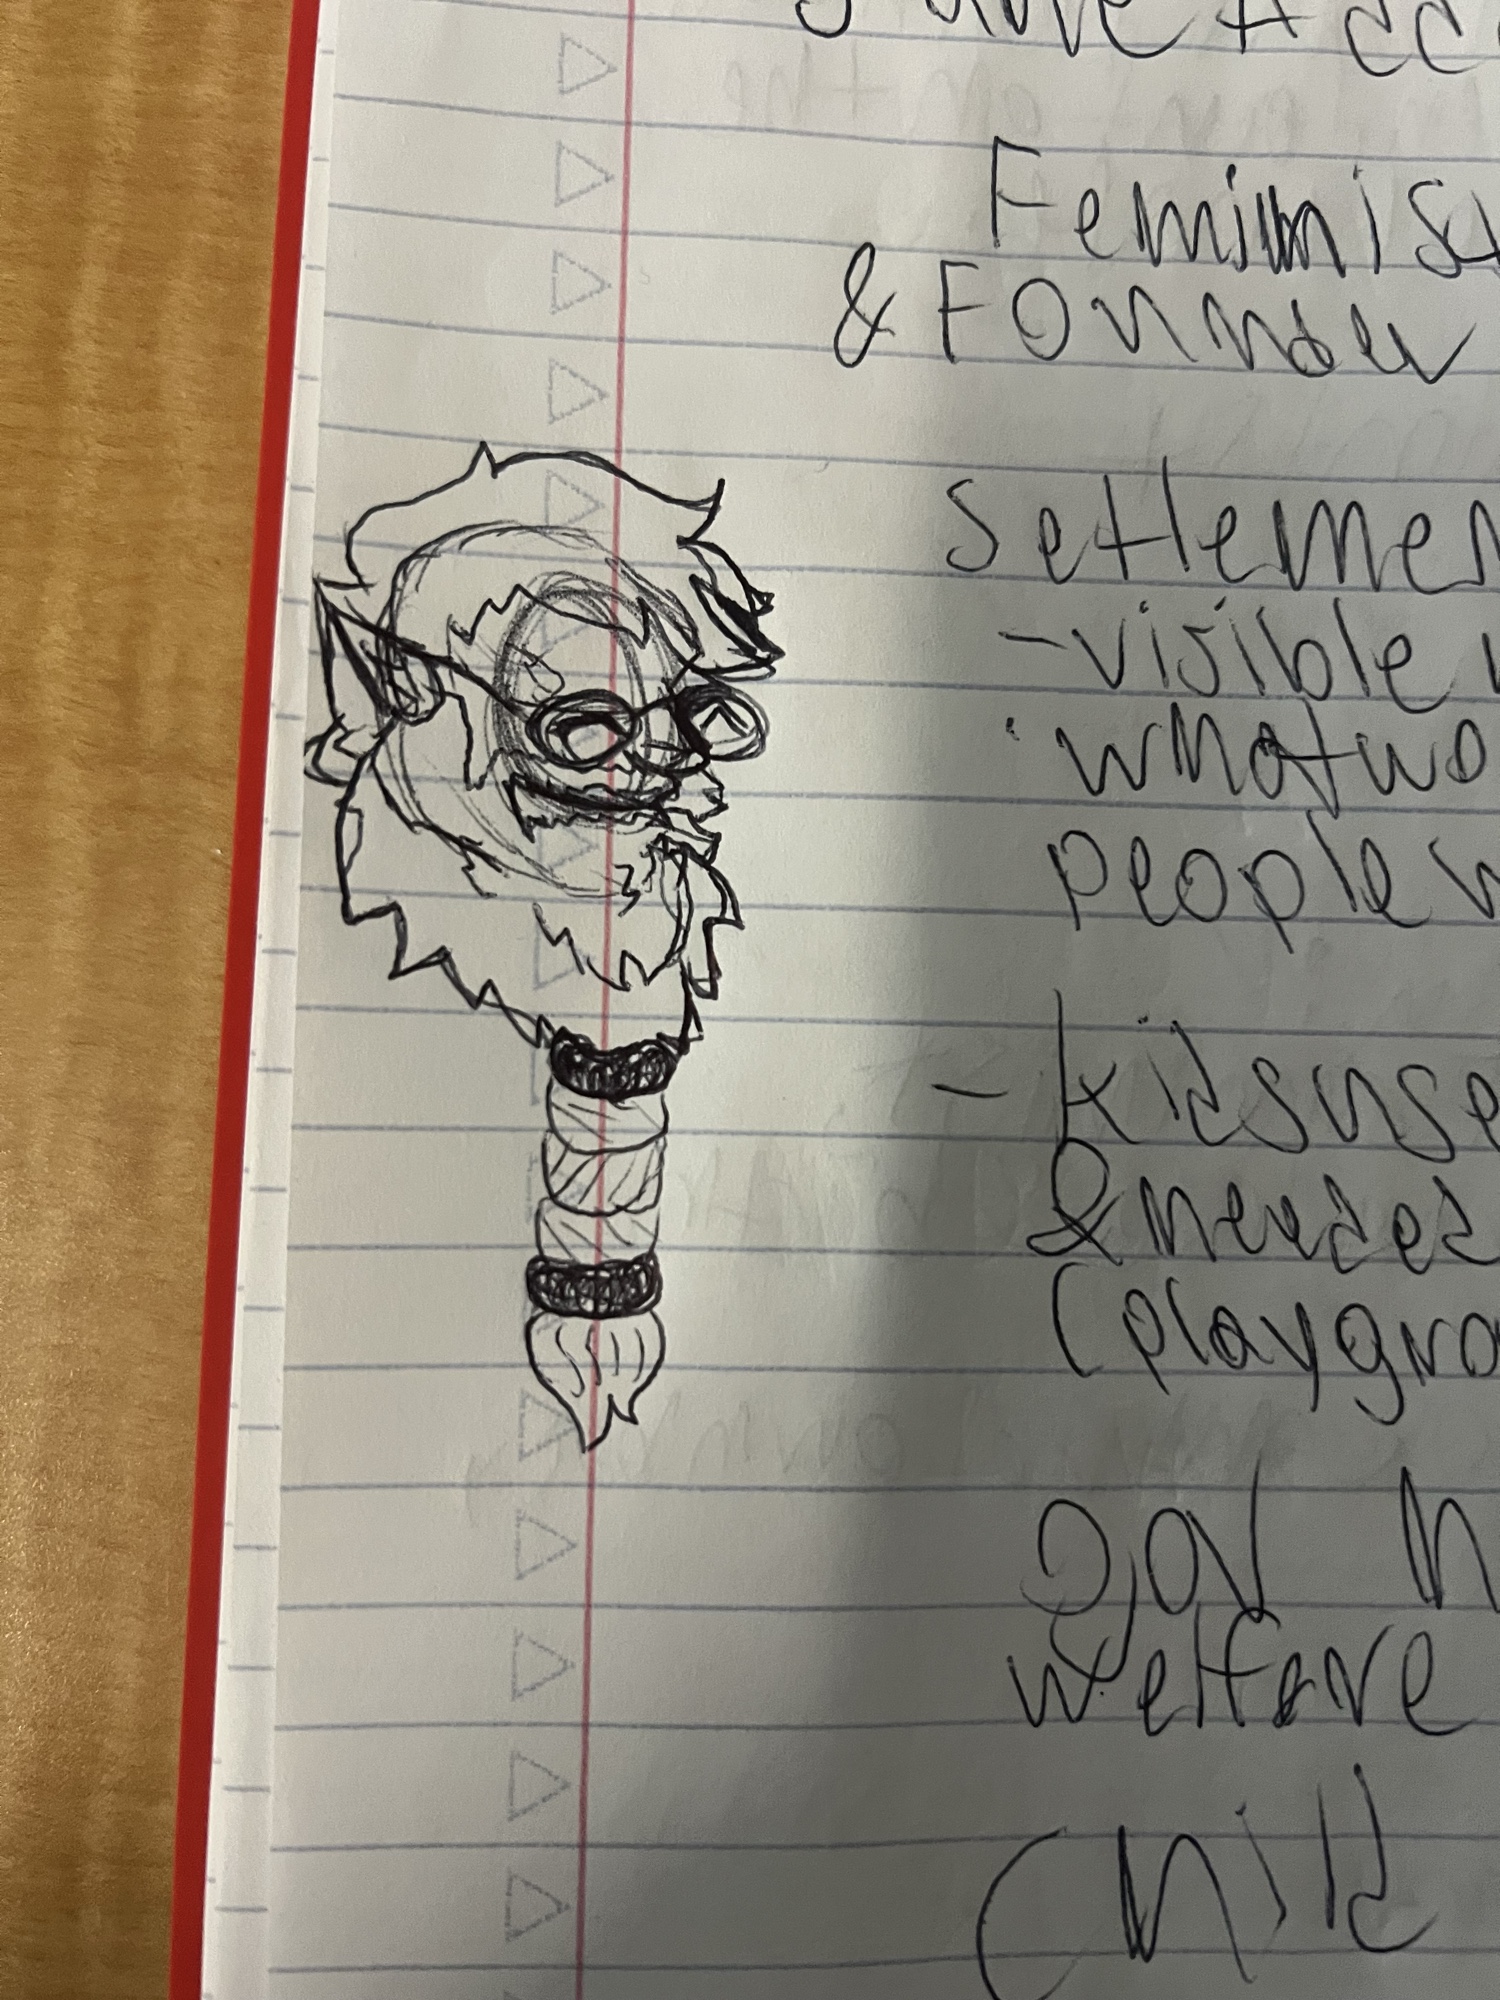 Jane Add
Feminist
& Founder
Setlemen
- visible w
· what wo
people w
- kids use
& needed
(playgro
gov
welfare
Child